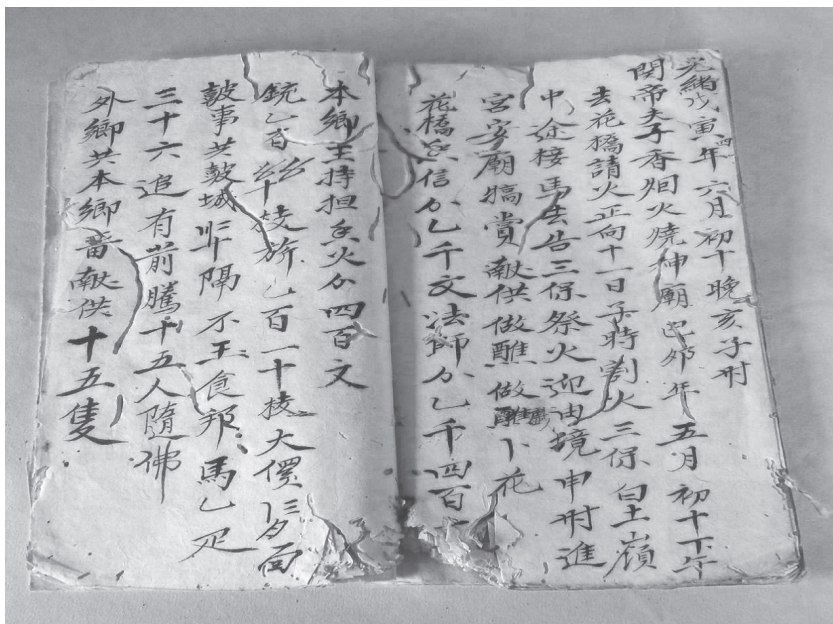 光緒戊寅年六月初十晚亥子时
関帝夫子香炉火燒神廟己夘年五月初十下午
去花橋請火正向十一日子時割火三保白土嶺
中途接馬告三保祭火迎由境申时進
宮安廟犒賞献供做醮做卜花
花橋信分乙千文法師分乙千四百
本鄉主持担火分四百文
銃乙百枝旂乙百一十枝大儸面
皷事共皷城隔不王食邦馬乙疋
三十六追有前騰千五人隨佛
外鄉共本鄉畨献供十五隻